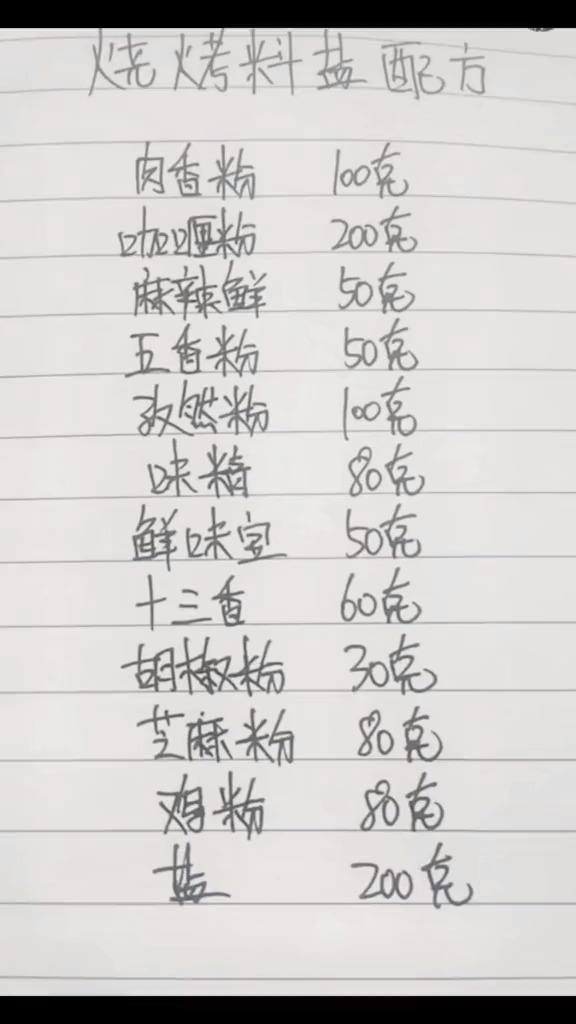 烧烤料盐配方
肉香粉 100克
咖喱粉 200克
麻辣鲜 50克
五香粉 50克
孜然粉 100克
味精 80克
鲜味宝 50克
十三香 60克
胡椒粉 30克
芝麻粉 80克
鸡粉 80克
盐 200克